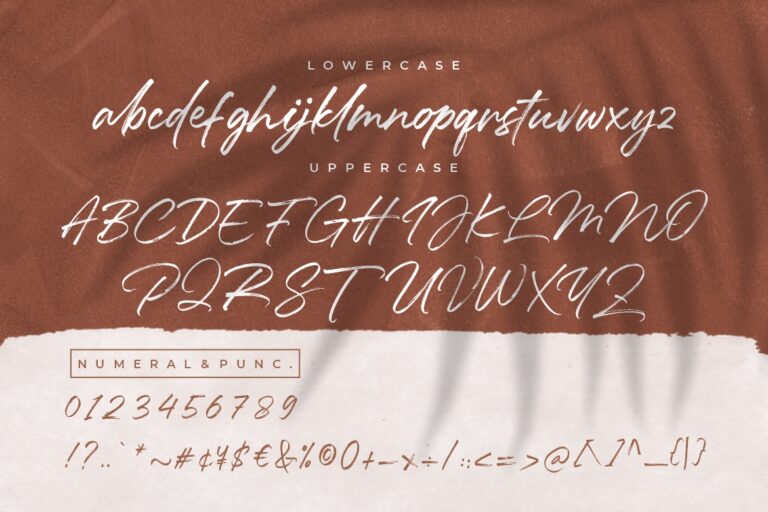 LOWERCASE
abcdefghijklmnopqrstuvwxyz
UPPERCASE
ABCDEFGHIJKLMNO
PQRSTUVWXYZ
NUMERAL&PUNC.
0123456789
!?..`*~#¢¥$€&%©()+-×÷/:;<=>@[\]^_{|}